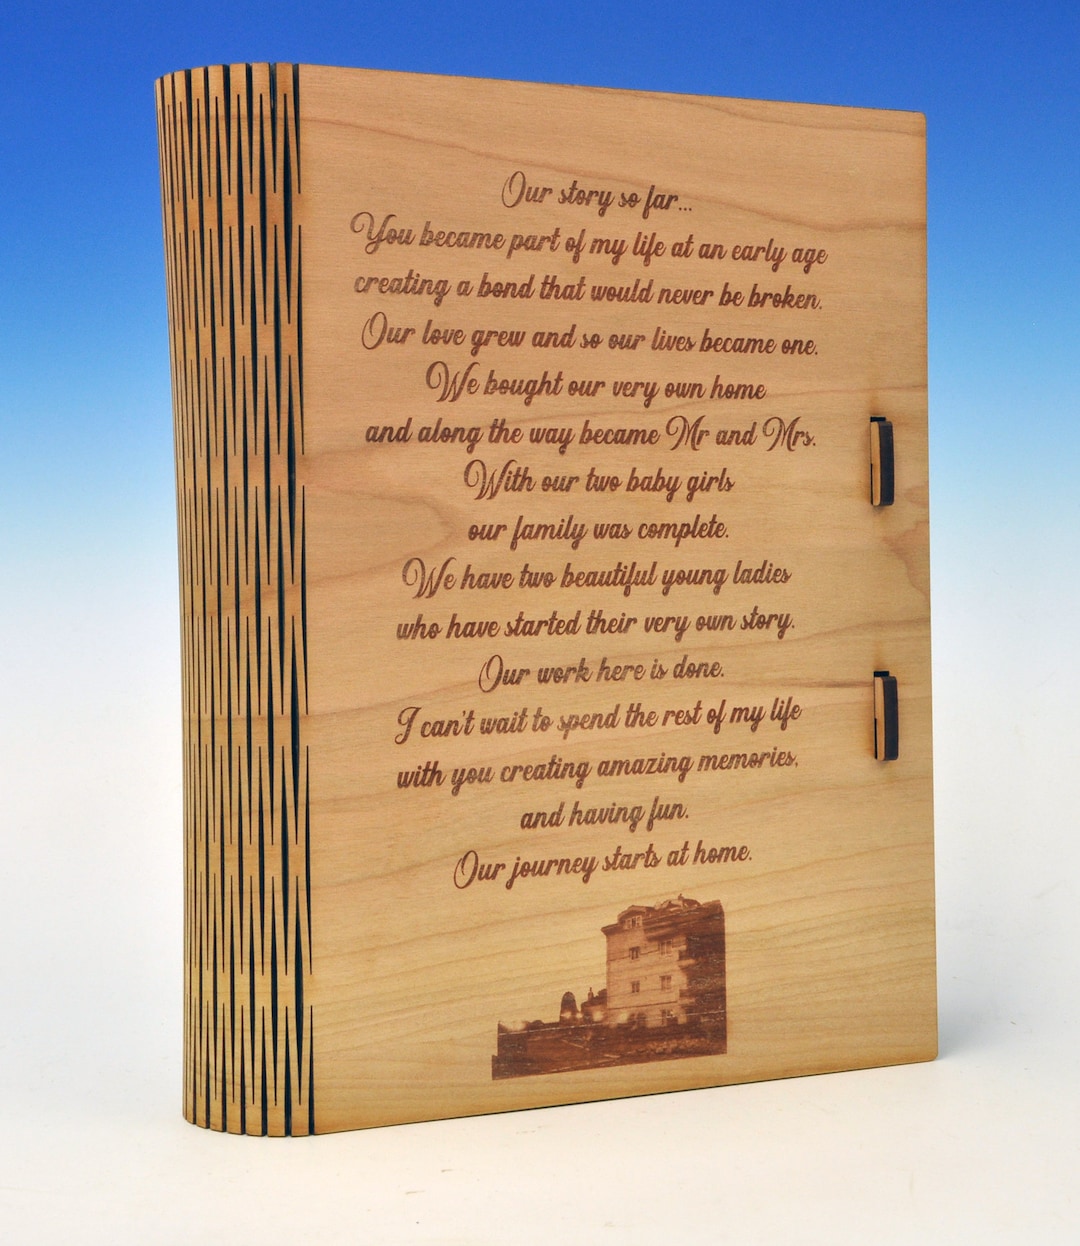 Our story so far...
You became part of my life at an early age
creating a bond that would never be broken.
Our love grew and so our lives became one.
We bought our very own home
and along the way became Mr and Mrs.
With our two baby girls
our family was complete.
We have two beautiful young ladies
who have started their very own story.
Our work here is done.
I can't wait to spend the rest of my life
with you creating amazing memories,
and having fun.
Our journey starts at home.